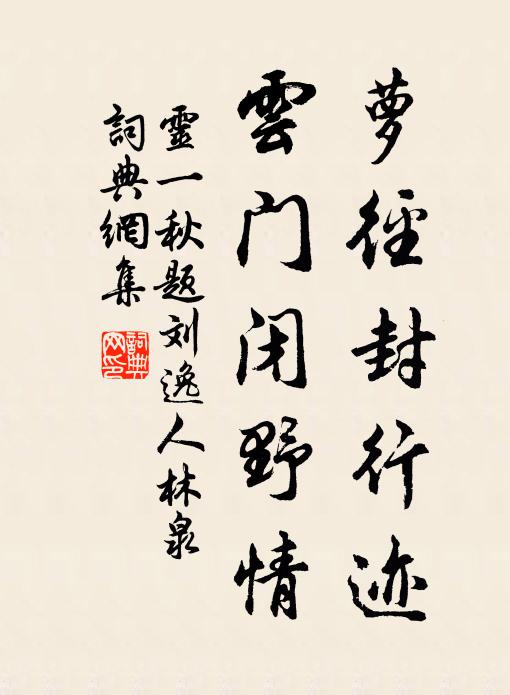 萝徑封行迹
雲门闭野情
靈一秋题刘逸人林泉
詞典網集
詞典
网印